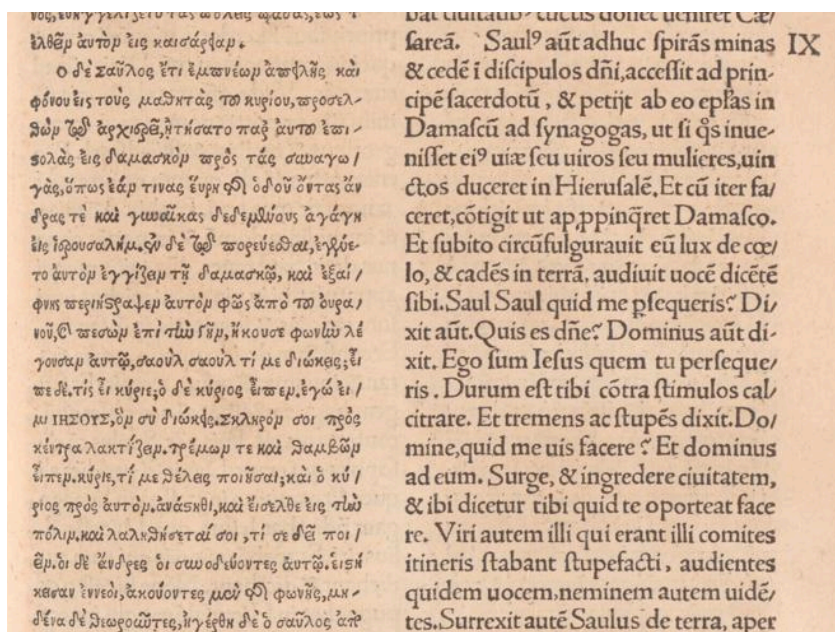 ἐλθεῖν αὐτὸν εἰς καισάρειαν.
Ο δὲ Σαῦλος ἔτι ἐμπνέων ἀπειλῆς καὶ
φόνου εἰς τοὺς μαθητὰς τοῦ κυρίου, προσελ-
θὼν τῷ ἀρχιερεῖ, ᾐτήσατο παρ αὐτοῦ ἐπι-
στολὰς εἰς δαμασκὸν πρὸς τάς συναγω/
γὰς, ὅπως ἐάν τινας εὕρῃ τῆς ὁδοῦ ὄντας ἄν
δρας τὲ καὶ γυναῖκας δεδεμένους ἀγάγῃ
εἰς ἱερουσαλήμ. ἐν δὲ τῷ πορεύεσθαι, ἐγένε-
το αὐτὸν ἐγγίζειν τῇ δαμασκῷ, καὶ ἐξαί/
φνης περιήστραψεν αὐτὸν φῶς ἀπὸ τοῦ οὐρα/
νοῦ, καὶ πεσὼν ἐπὶ τὴν γῆν, ἤκουσε φωνὴν λέ
γουσαν αὐτῷ, σαοὺλ σαοὺλ τί με διώκεις; εἶ
πε δὲ. τίς εἶ κύριε; ὁ δὲ κύριος εἶπεν. ἐγώ εἰ/
μι ΙΗΣΟΥΣ, ὃν σὺ διώκεις. Σκληρόν σοι πρὸς
κέντρα λακτίζειν. τρέμων τε καὶ θαμβῶν
εἶπεν. κύριε, τί με θέλεις ποιῆσαι; καὶ ὁ κύ/
ριος πρὸς αὐτόν. ἀνάστηθι, καὶ εἴσελθε εἰς τὴν
πόλιν. καὶ λαληθήσεταί σοι, τί σε δεῖ ποι/
εῖν. οἱ δὲ ἄνδρες οἱ συνοδεύοντες αὐτῷ. εἱστή
κεισαν ἐννεοὶ, ἀκούοντες μὲν τῆς φωνῆς, μη-
δένα δὲ θεωροῦντες, ἠγέρθη δὲ ὁ σαῦλος ἀπὸ
IX
sareã. Saulꝰ aũt adhuc ſpirãs minas
& cedẽ ĩ diſcipulos dñi, acceſſit ad prin-
cipẽ ſacerdotũ, & petijt ab eo epl̃as in
Damaſcũ ad ſynagogas, ut ſi q̃s inue-
niſſet eiꝰ uiæ ſeu uiros ſeu mulieres, uin
ctos duceret in Hieruſalẽ. Et cũ iter fa/
ceret, cõtigit ut ap,ppinq̃ret Damaſco.
Et ſubito circũfulgurauit eũ lux de cœ/
lo, & cadẽs in terrã, audiuit uocẽ dicẽtẽ
ſibi. Saul Saul quid me ꝑſequeris? Di/
xit aũt. Quis es dñe? Dominus aũt di-
xit. Ego ſum Ieſus quem tu perſeque/
ris. Durum eſt tibi cõtra ſtimulos cal/
citrare. Et tremens ac ſtupẽs dixit. Do/
mine, quid me uis facere? Et dominus
ad eum. Surge, & ingredere ciuitatem,
& ibi dicetur tibi quid te oporteat face
re. Viri autem illi qui erant illi comites
itineris ſtabant ſtupefacti, audientes
quidem uocem, neminem autem uidẽ/
tes. Surrexit autẽ Saulus de terra, aper